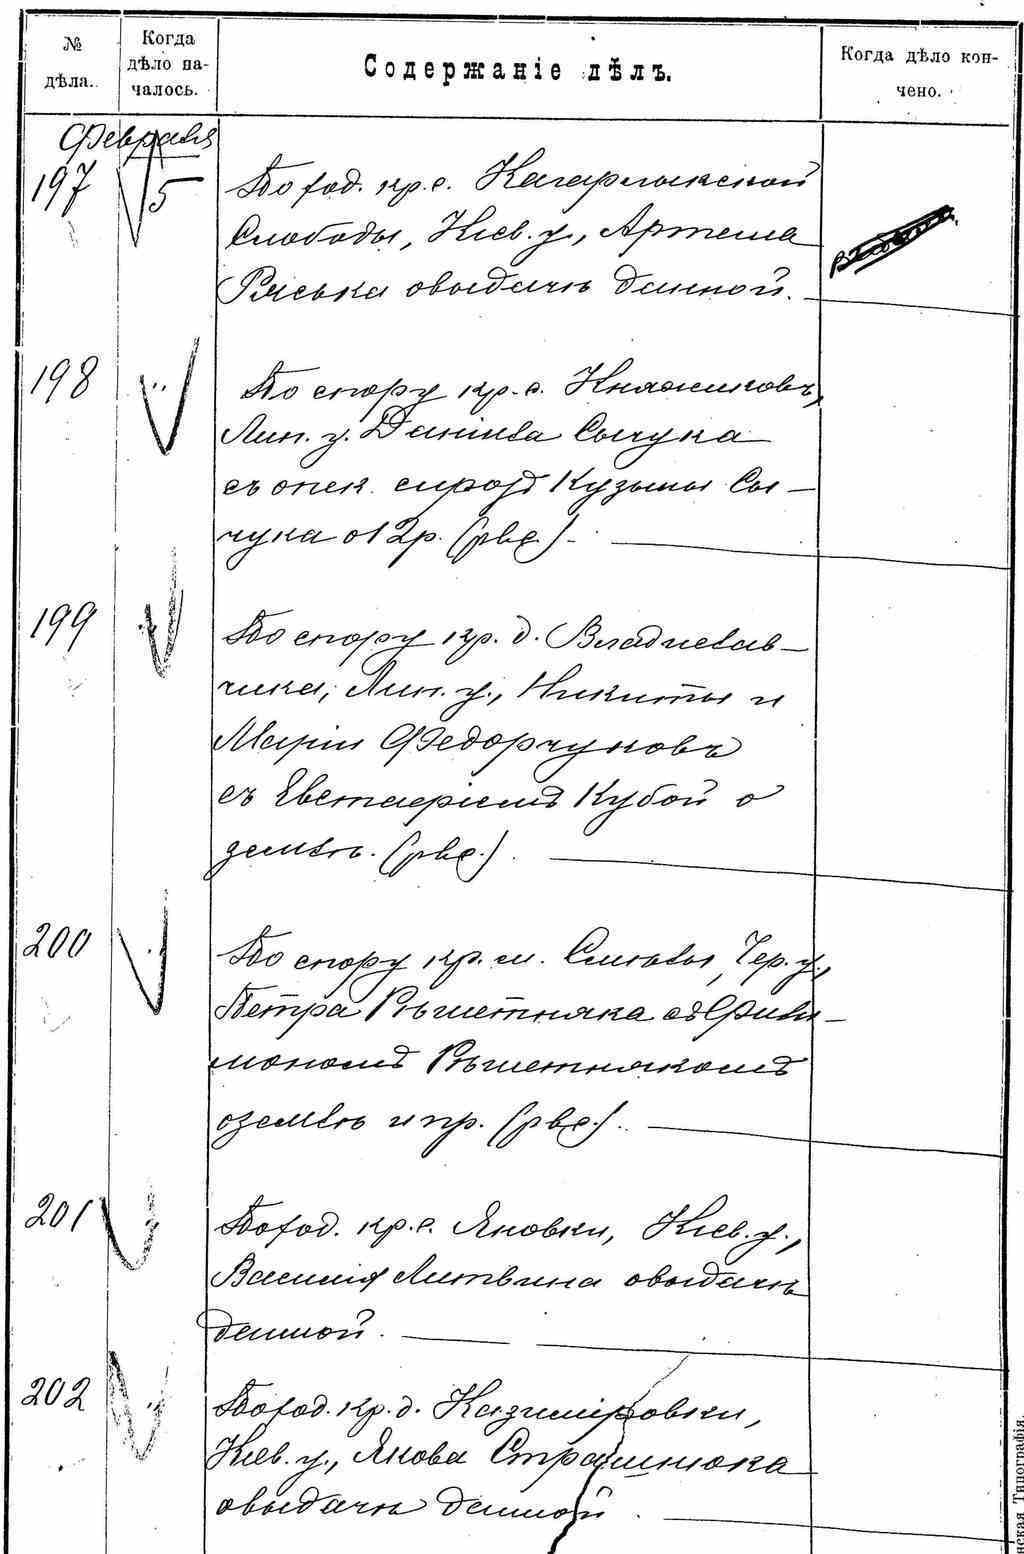 № дѣла.
Когда дѣло на-
чалось.
Содержаніе дѣлъ.
Когда дѣло кон-
чено.
Февраля
197 5 По ход. кр. с. Кагарлыкской
Слободы, Кіев. у., Артема
Ряська о выдачѣ данной.
198 " По спору кр. с. Княжиковъ,
Лип. у. Даніила Сычука
съ опек. сирот Кузьмы Сы-
чука о 12 р. (рвс.)
199 " По спору кр. д. Владислав-
чика, Лип. у., Никиты и
Маріи Федорчуковъ
съ Евстафіемъ Кубой о
землѣ. (рвс.)
200 " По спору кр. м. Смѣлы, Чер. у.,
Петра Рѣшетняка съ Фили-
мономъ Рѣшетнякомъ
о землѣ и пр. (рвс.)
201 " По ход. кр. с. Яновки, Кіев. у.,
Василія Литвина о выдачѣ
данной.
202 " По ход. кр. д. Казиміровки,
Кіев. у., Якова Страшнюка
о выдачѣ данной.
нская Типографія.